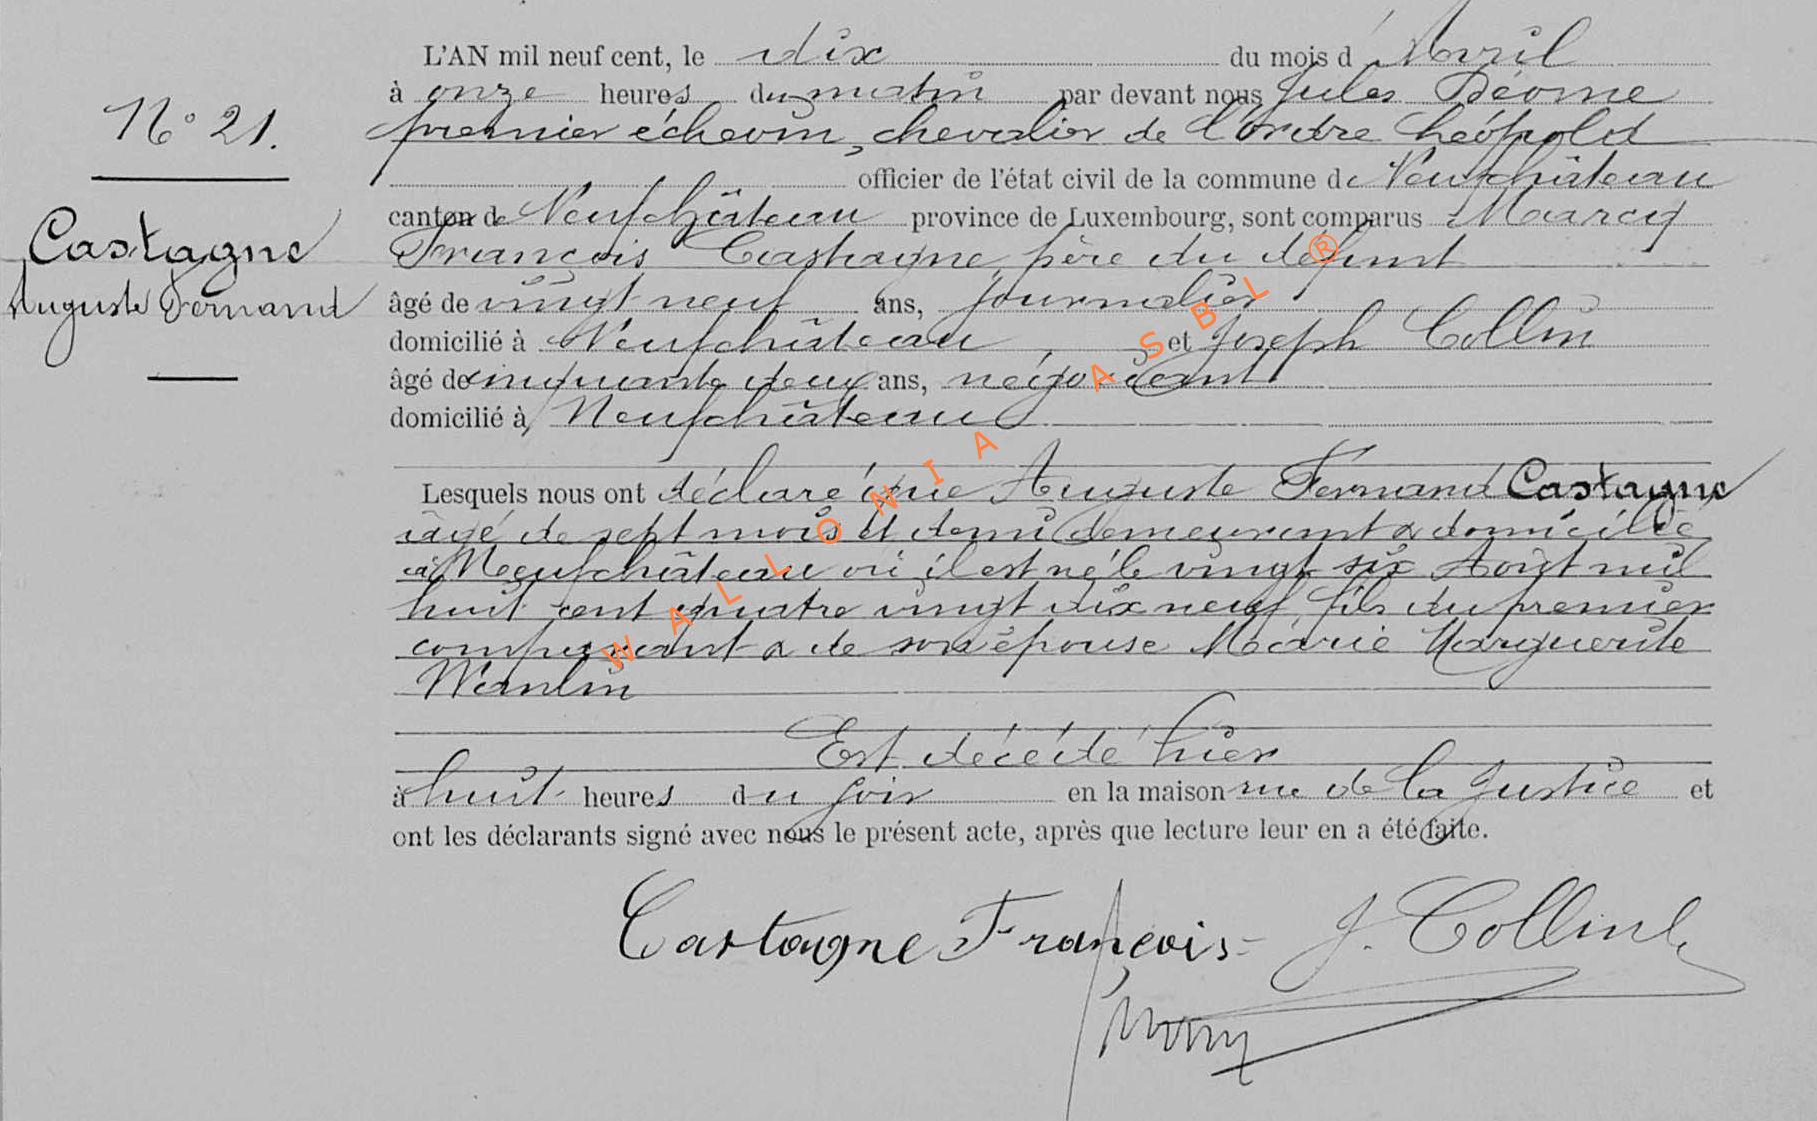 L'AN mil neuf cent, le dix du mois d'Avril
à onze heures du matin par devant nous Jules
premier échevin, chevalier de l'ordre Léopold
officier de l'état civil de la commune de Neufchâteau
N° 21.
canton de Neufchâteau province de Luxembourg, sont comparus
Castagne
Auguste Fernand
François Castagne, père du défunt
âgé de vingt neuf ans, journalier
domicilié à Neufchâteau et Joseph Collin
âgé de cinquante deux ans, négociant
domicilié à Neufchâteau
Lesquels nous ont déclaré que Auguste Fernand Castagne
âgé de sept mois et demi demeurant & domicilié
à Neufchâteau où il est né le vingt six Août mil
huit cent quatre vingt dix neuf, fils du premier
comparant & de son épouse Marie Marguerite
Wanlin
Est décédé hier
à huit heures du soir en la maison rue de la Justice et
ont les déclarants signé avec nous le présent acte, après que lecture leur en a été faite.
Castagne François J. Collin
WALLONIA ASBL ®